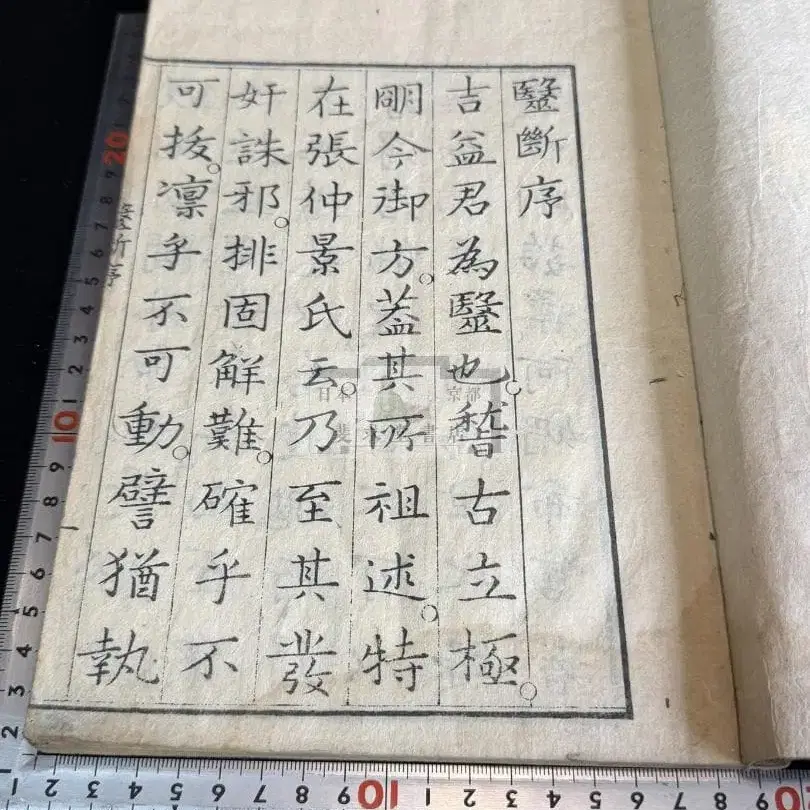 毉斷序
吉益君為毉也。稽古立極。
明今御方。蓋其所祖述。特
在張仲景氏云。乃至其發
奸誅邪。排固解難。確乎不
可拔。凛乎不可動。譬猶執
毉斷序
日本 京都